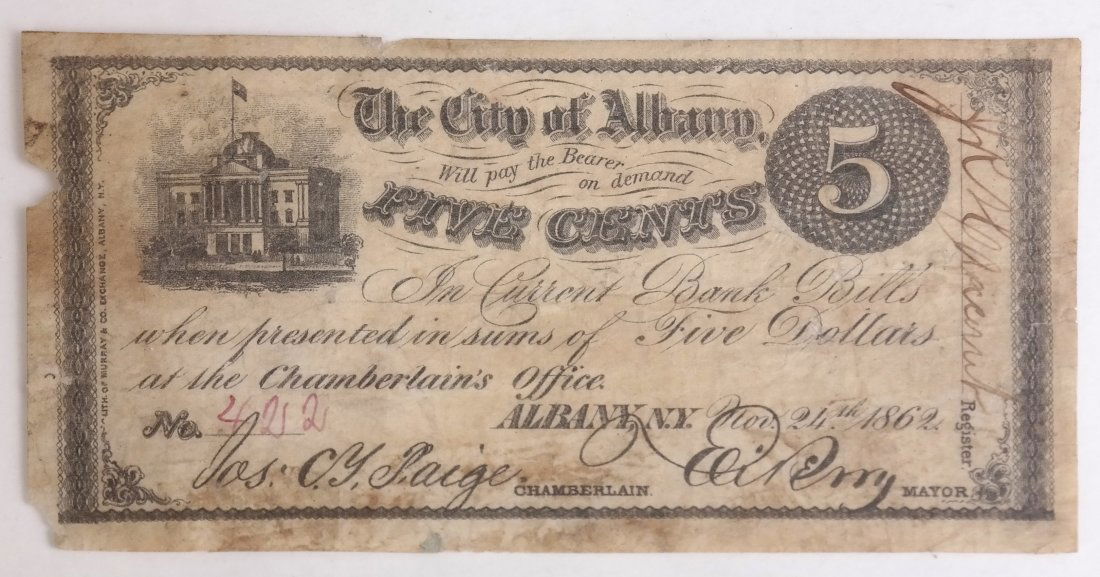 The City of Albany,
Will pay the Bearer
on demand
FIVE CENTS
5
In Current Bank Bills
when presented in sums of Five Dollars
at the Chamberlain's Office.
No. 422
ALBANY, N.Y. Nov. 24th 1862.
Jos: C. Y. Paige CHAMBERLAIN.
Eli Perry MAYOR
Register
LITH. OF MURRAY & CO. EXCHANGE, ALBANY, N.Y.